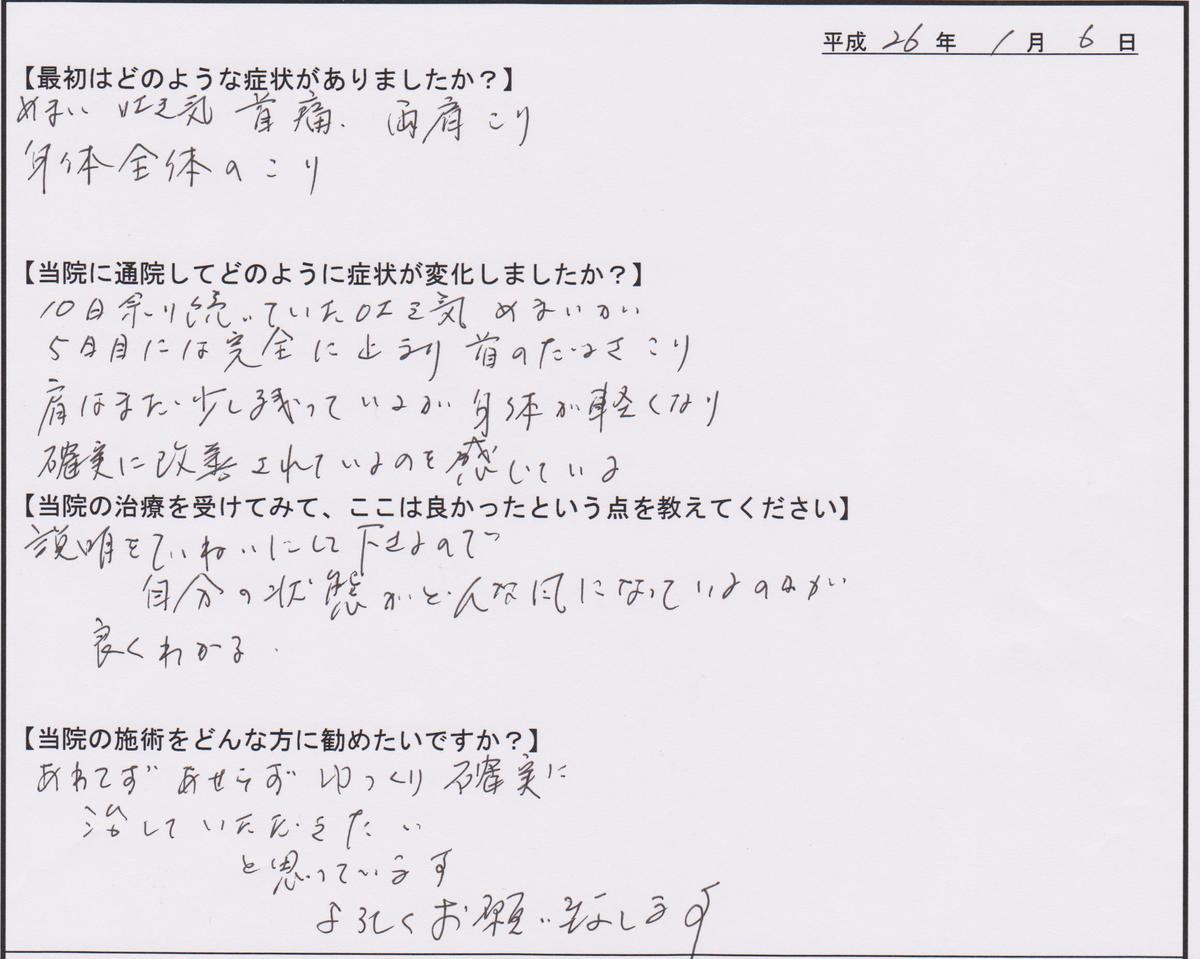 平成 26 年 1 月 6 日
【最初はどのような症状がありましたか？】
めまい 吐き気 首痛、両肩こり
身体全体のこり
【当院に通院してどのように症状が変化しましたか？】
10日余り続いていた吐き気 めまいが
5日目には完全に止まり 首のだるさ こり
肩はまだ少し残っているが 身体が軽くなり
確実に改善されているのを感じている
【当院の治療を受けてみて、ここは良かったという点を教えてください】
説明をていねいにして下さるので
自分の状態がどんな風になっているのかが
良くわかる.
【当院の施術をどんな方に勧めたいですか？】
あわてず あせらず ゆっくり 確実に
治していただきたい
と思っています
よろしくお願い致します